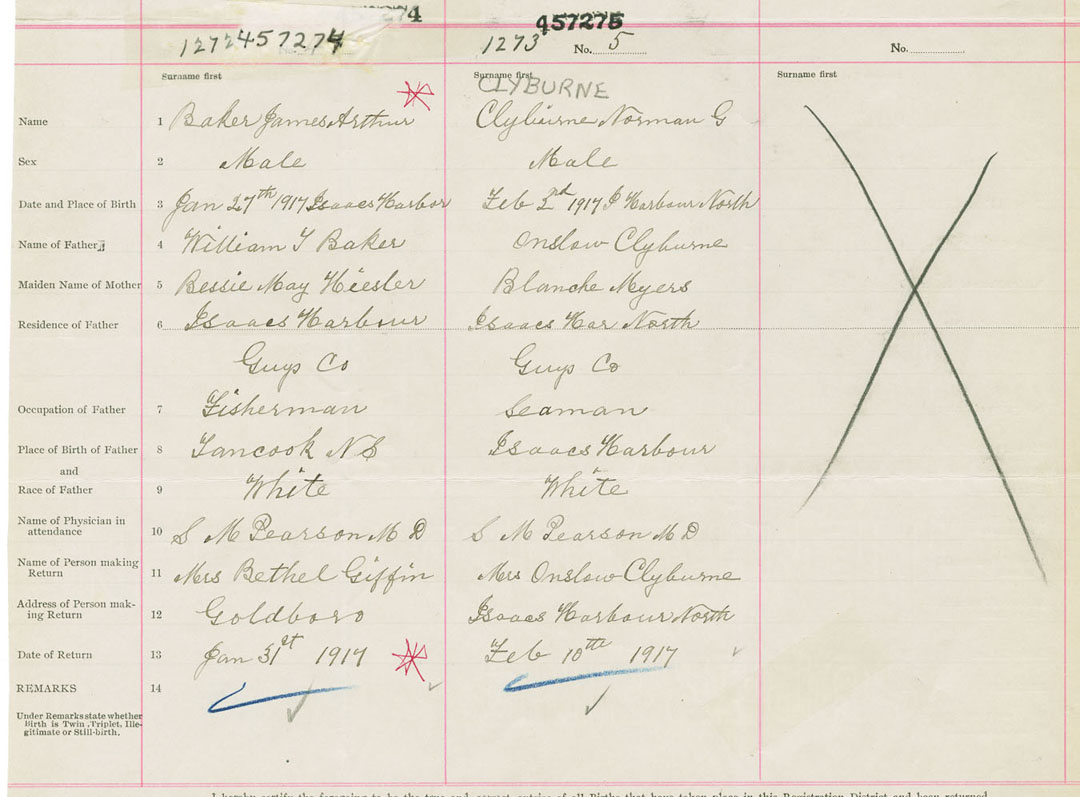 274 457275
1272 457274 1273 No. 5 No.
Surname first Surname first Surname first
CLYBURNE
Name 1 Baker James Arthur Clyburne Norman G
Sex 2 Male Male
Date and Place of Birth 3 Jan 27th 1917 Isaacs Harbor Feb 2nd 1917 I Harbour North
Name of Father 4 William T Baker Onslow Clyburne
Maiden Name of Mother 5 Bessie May Hiesler Blanche Myers
Residence of Father 6 Isaacs Harbour Isaacs Har North
Guys Co Guys Co
Occupation of Father 7 Fisherman Seaman
Place of Birth of Father 8 Tancook N S Isaacs Harbour
and
Race of Father 9 White White
Name of Physician in
attendance 10 S M Pearson M D S M Pearson M D
Name of Person making
Return 11 Mrs Bethel Giffin Mrs Onslow Clyburne
Address of Person mak-
ing Return 12 Goldboro Isaacs Harbour North
Date of Return 13 Jan 31st 1917 Feb 10th 1917
REMARKS 14
Under Remarks state whether
Birth is Twin, Triplet, Ille-
gitimate or Still-birth.
I hereby certify the foregoing to be the true and correct entries of all Births that have taken place in this Registration District and been returned